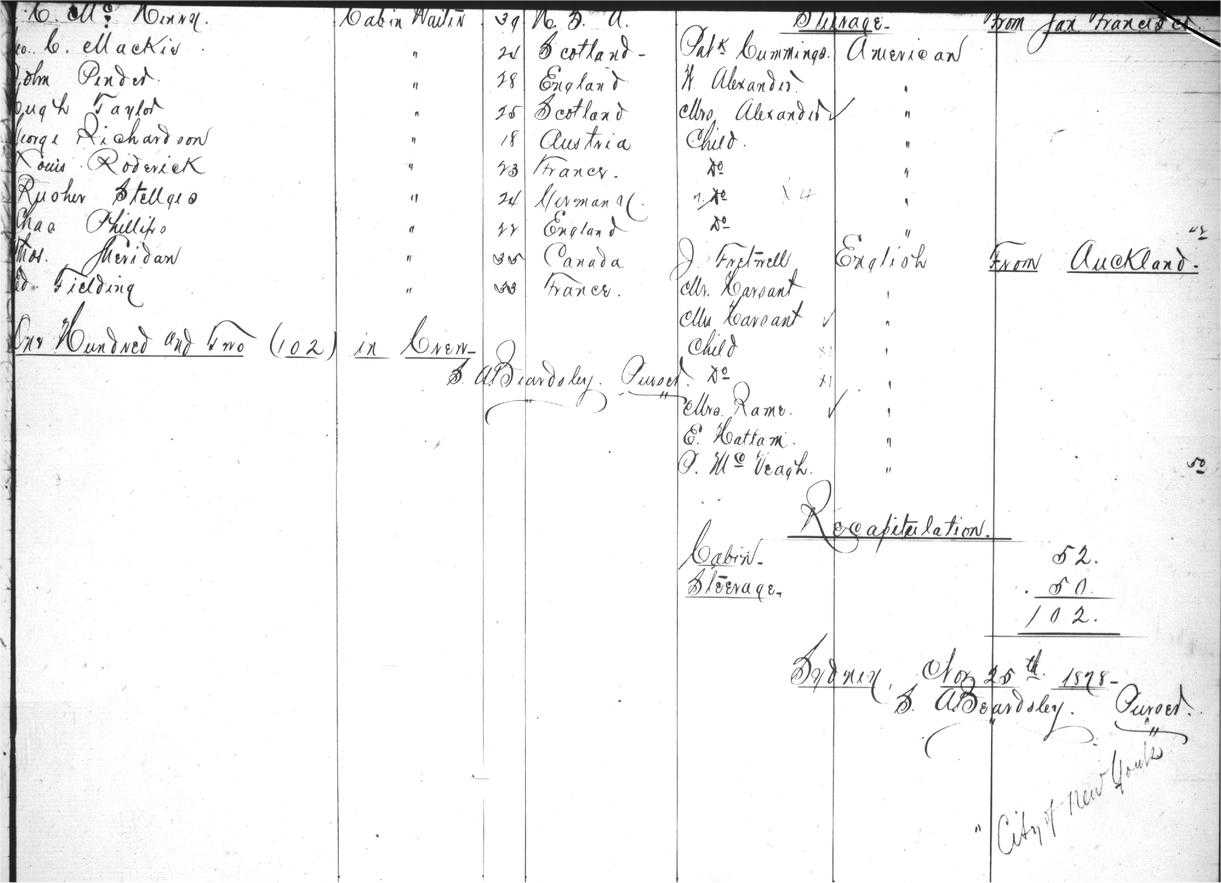 C. Mc Kenny. Cabin Waiter 39 U. S. A.
C. Mackie " 24 Scotland -
John Pender " 28 England
Hugh Taylor " 25 Scotland
George Richardson " 18 Austria
Louis Roderick " 23 France.
Stellges " 24 Germany.
Chas Phillips " 22 England
Thos. Sheridan " 35 Canada
Ed. Fielding " 33 France.
One Hundred and Two (102) in Crew-
S. A. Beardsley. Purser.
Steerage. From San Francisco
Patk Cummings. American
W Alexander. "
Mrs Alexander "
Child. "
Do "
Do "
Do "
J Fretwell English From Auckland.
Mr. Harsant "
Mrs Harsant "
Child "
Do "
Mrs. Rame. "
E. Hattam. "
P. Mc Veagh. " 50
Recapitulation.
Cabin- 52.
Steerage. 50.
102.
Sydney, Nov 25th 1878-
S. A. Beardsley. Purser.
" City of New York